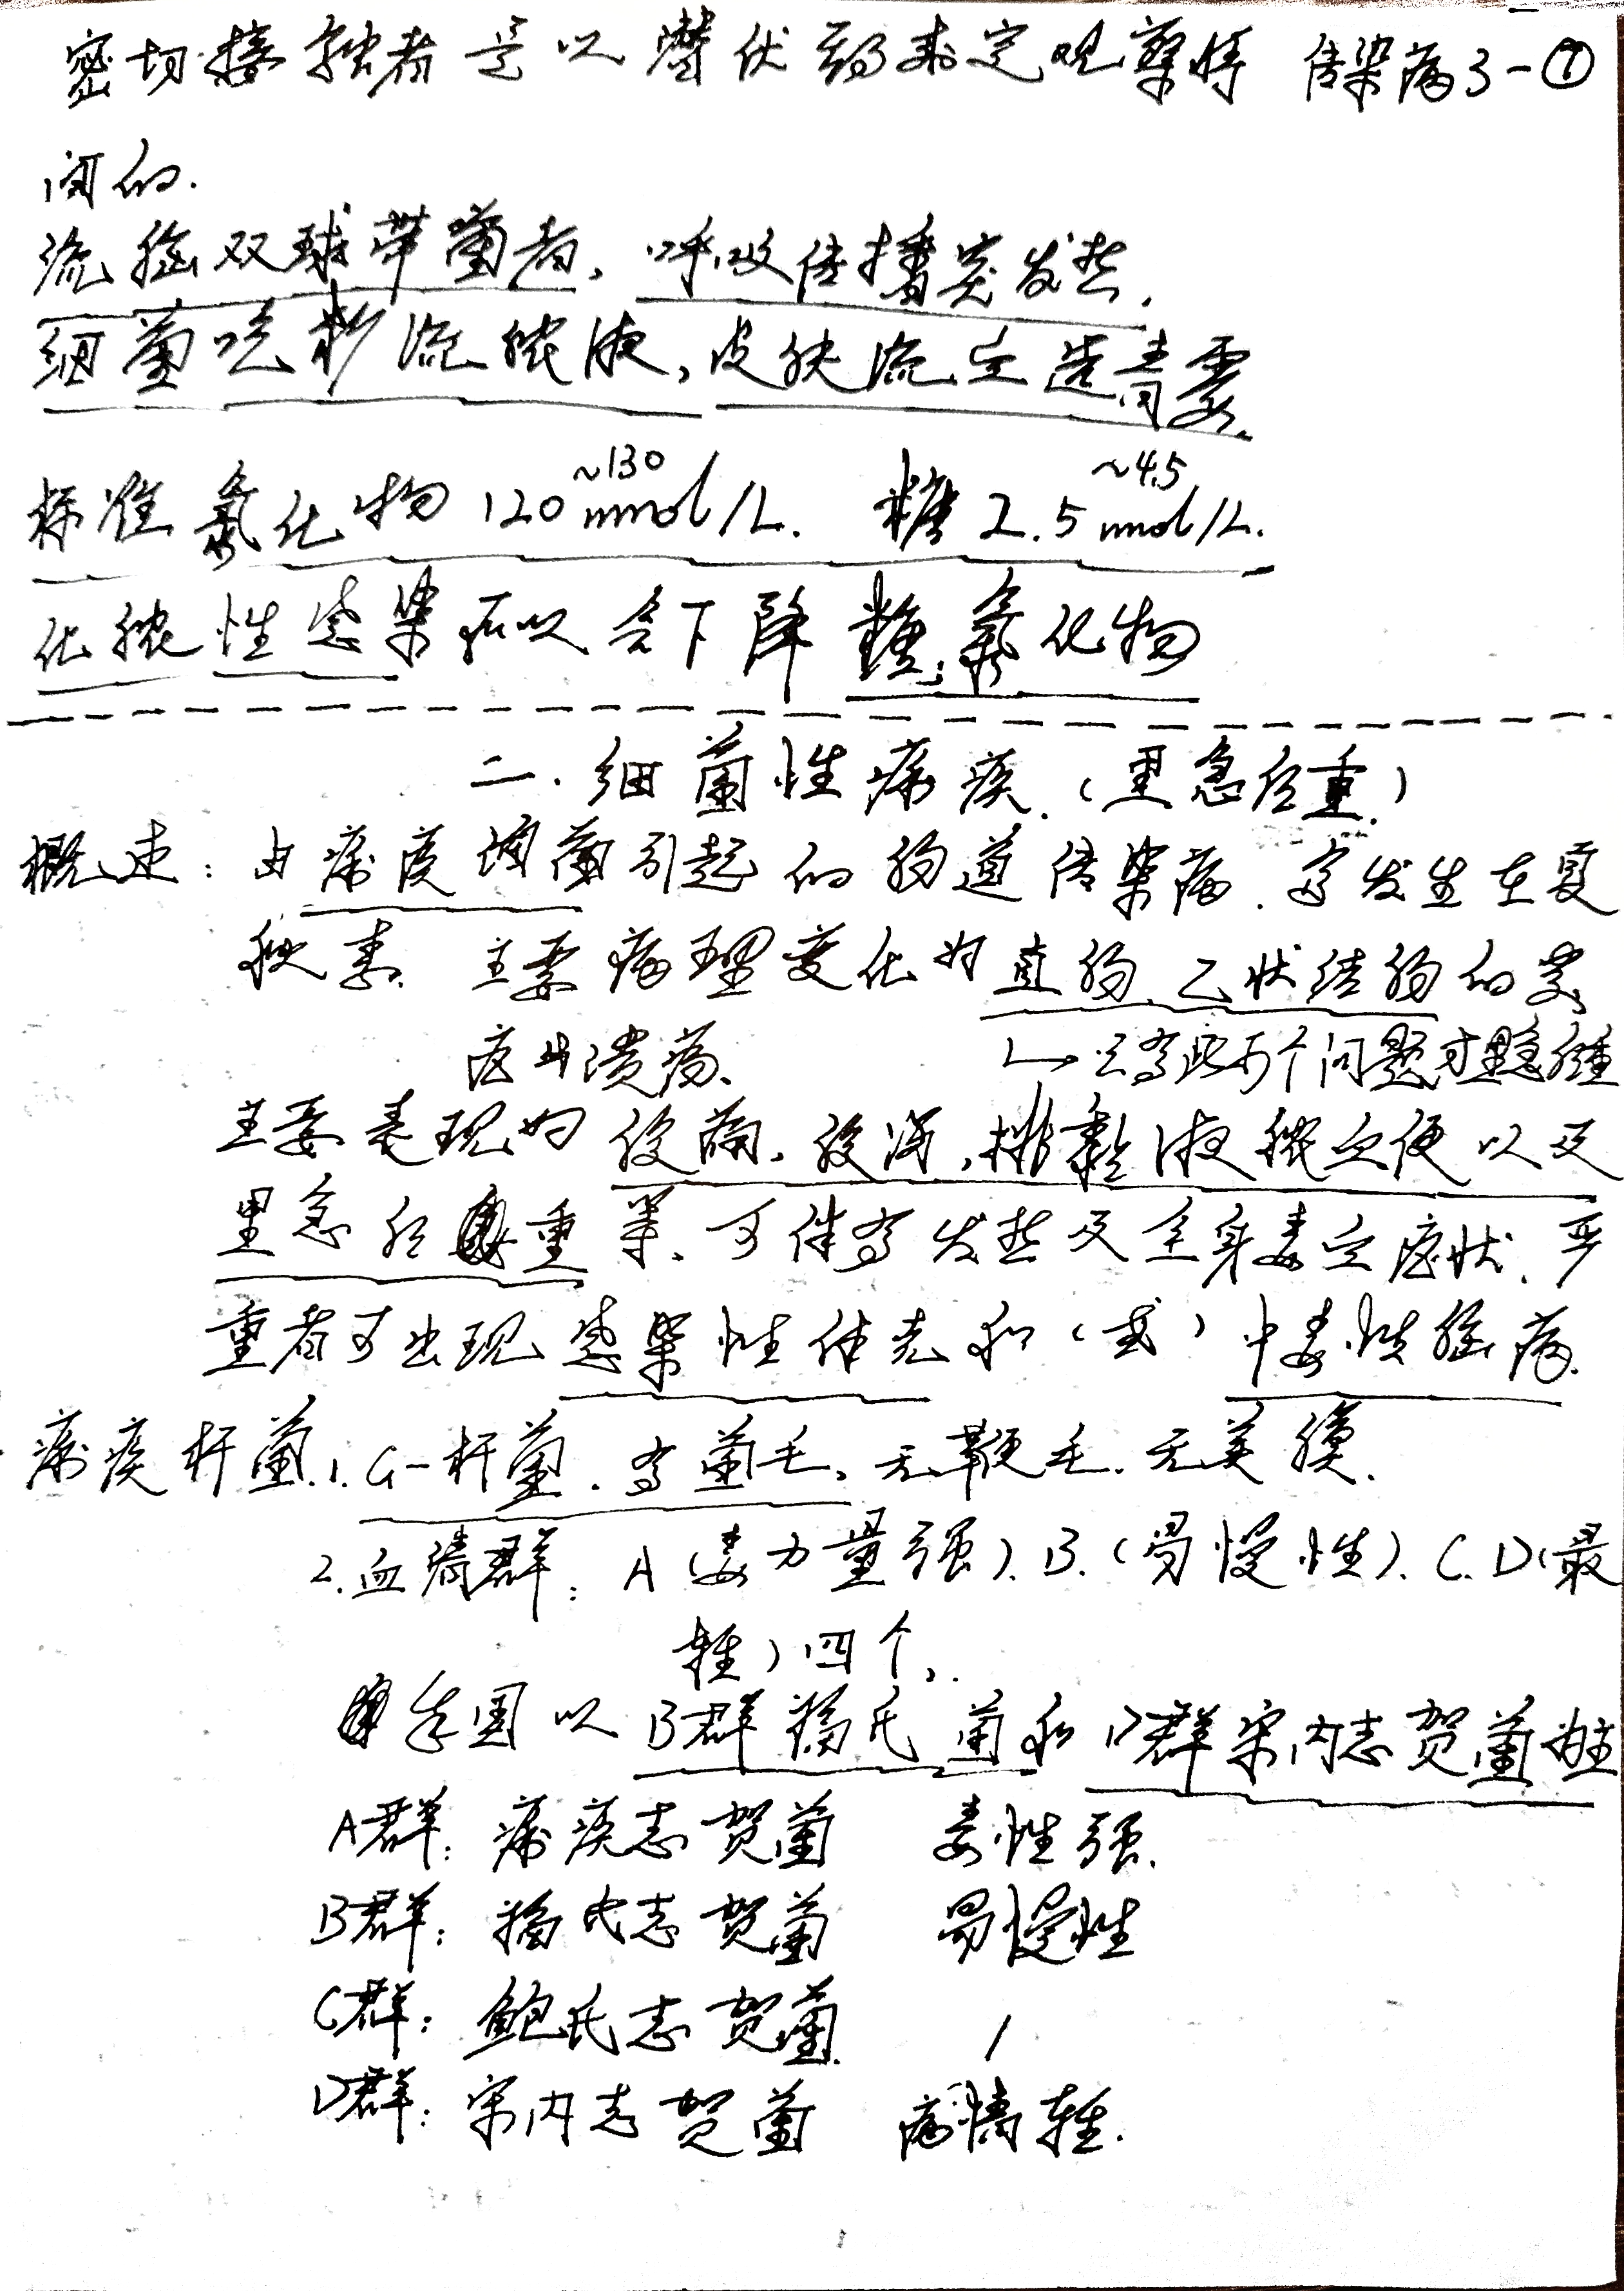 密切接触者是以潜伏期来定观察时 传染病3-⑦
间的.
流脑双球带菌者、呼吸传播突发热.
细菌吃糖流脓液,皮肤流血选青霉.
标准氯化物120~130mmol/L. 糖2.5~4.5mmol/L.
化脓性感染所以会下降糖、氯化物
二.细菌性痢疾.(里急后重.)
概述:由痢疾细菌引起的肠道传染病.多发生在夏
秋季. 主要病理变化为直肠、乙状结肠的炎
症与溃疡、
↳只有此两个问题才里急后重
主要表现为腹痛、腹泻、排黏液脓血便以及
里急后重等、可伴有发热及全身毒血症状、严
重者可出现感染性休克和(或)中毒性脑病.
痢疾杆菌.1.G-杆菌.有菌毛、无鞭毛.无荚膜.
2.血清群:A(毒力量强).B.(易慢性).C.D(最
轻)四个、
我国以B群福氏菌和D群宋内志贺菌为主
A群:痢疾志贺菌 毒性强.
B群:福氏志贺菌 易慢性
C群:鲍氏志贺菌. /
D群:宋内志贺菌 病情轻.